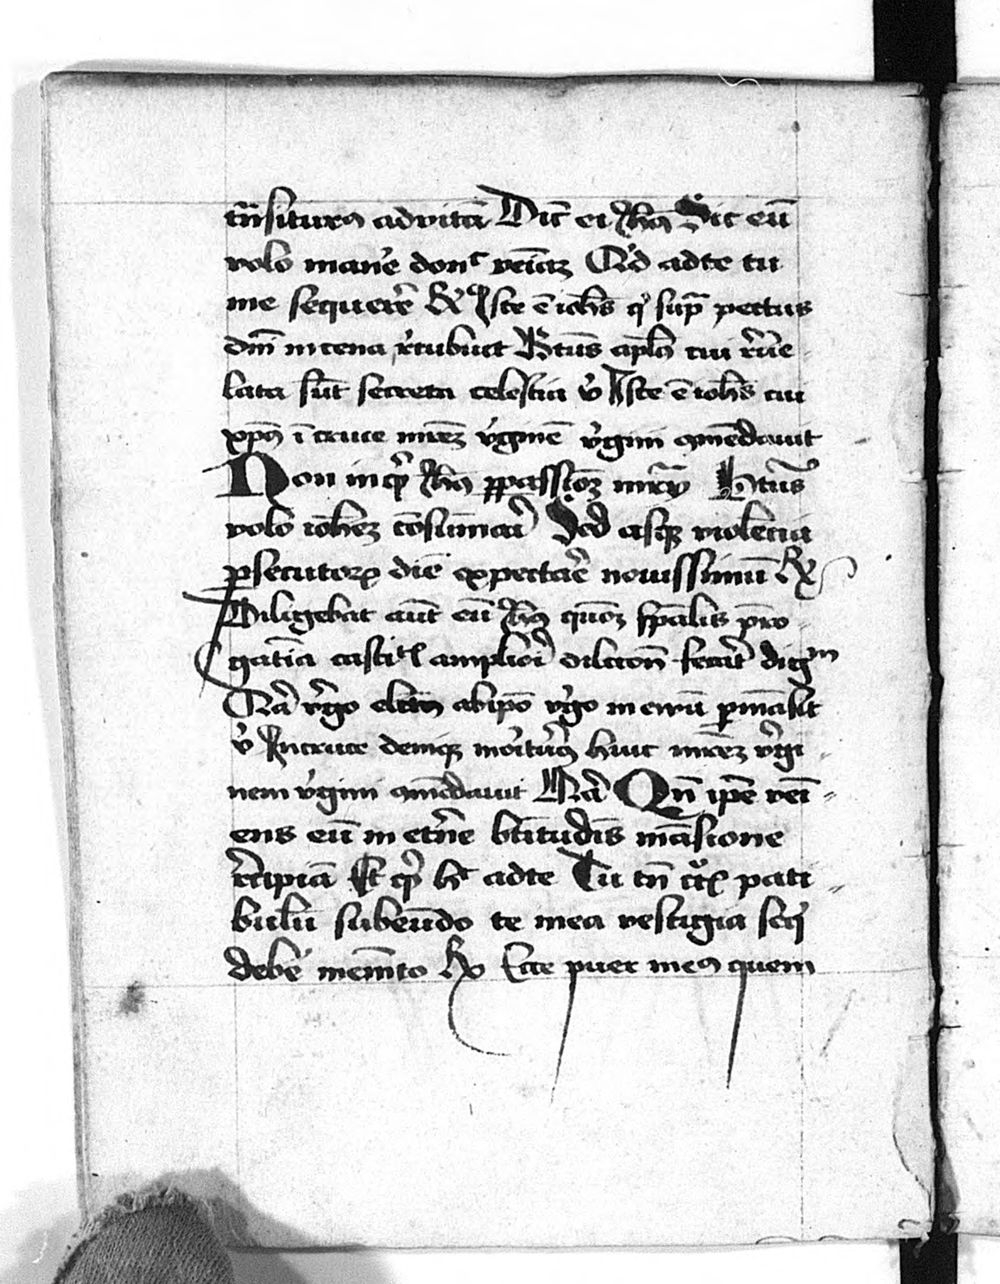 tn̄siturꝰ ad vitā Dic̄ ei ihꝰ Sic eū
volo man̄e donc̄ veīaꝫ Qͥd ad te tu
me sequere R Iste ē ioh̄s qͥ sup̄ pectus
dn̄i in cena recubuit Btūs apl̄s cui reve
lata sūt secreta celestia v̄ Iste ē ioh̄s cui
xp̄s ī cruce mr̄eꝫ vͥginē vͥgini ꝯmēdauit
Non inqͥ ihꝰ ꝑ passionꝫ
volo ioh̄eꝫ cōsūmari Sed absqꝫ violencia
ꝑsecutorꝝ diē expectare nouissimū R
Diligebat aūt eū ihꝰ qm̄ spāl̓is p̄ro
gatīa castitꝭ ampliori dilc̄ōn fec̄at dignm̄
Qꝛ vͥgo elc̄tꝰ ab ip̄o vͥgo in evū ꝑmāsit
v̄ In cruce deniqꝫ moriturꝰ huic mr̄eꝫ vͥgi
nem vͥgini ꝯmēdauit Qn̄ ip̄e veī
ens eū in et̄ne bt̄itudīs māsione
recipiā Et qͥ h̄ ad te Tu tn̄ pati
bulū subeūdo te mea vestigia seqͥ
debe memēto R Ecce puer meꝰ quem